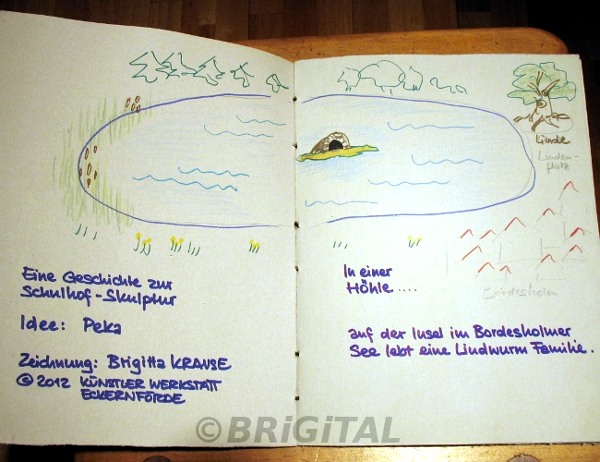 Eine Geschichte zur
Schulhof-Skulptur
Idee: Peka
Zeichnung: Brigitta KRAUSE
© 2012 KÜNSTLER WERKSTATT
ECKERNFÖRDE
Linde
Linden-
platz
Bordesholm
In einer
Höhle ....
auf der Insel im Bordesholmer
See lebt eine Lindwurm Familie.
© BRiGiTAL